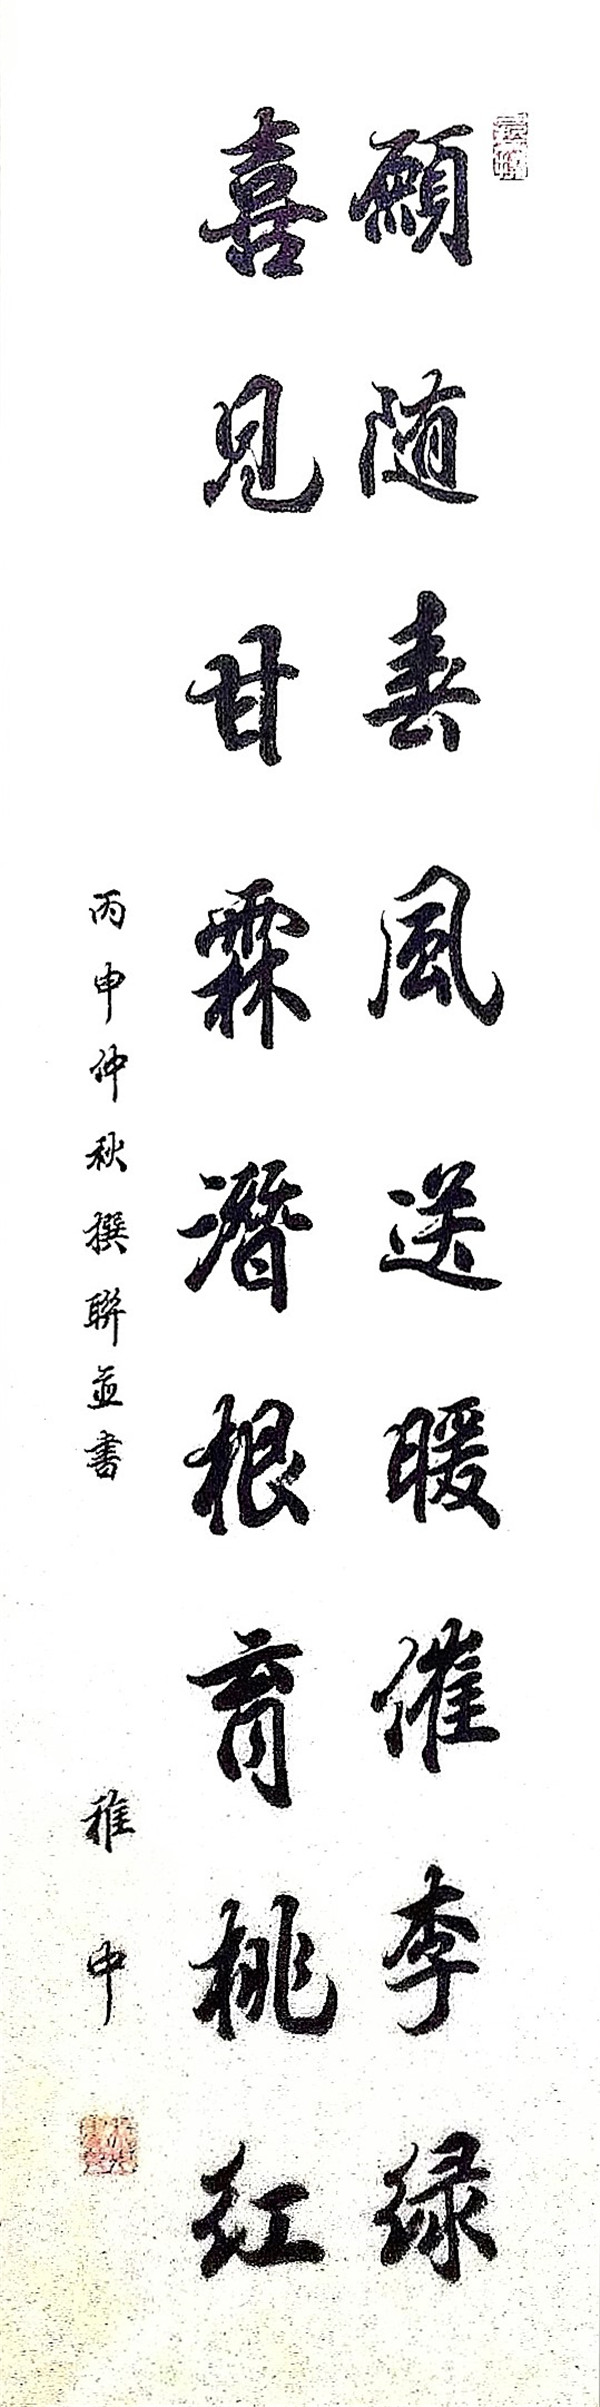 願随春風送暖催李绿
喜見甘霖潛根育桃红
丙申仲秋撰聯並書
稚中